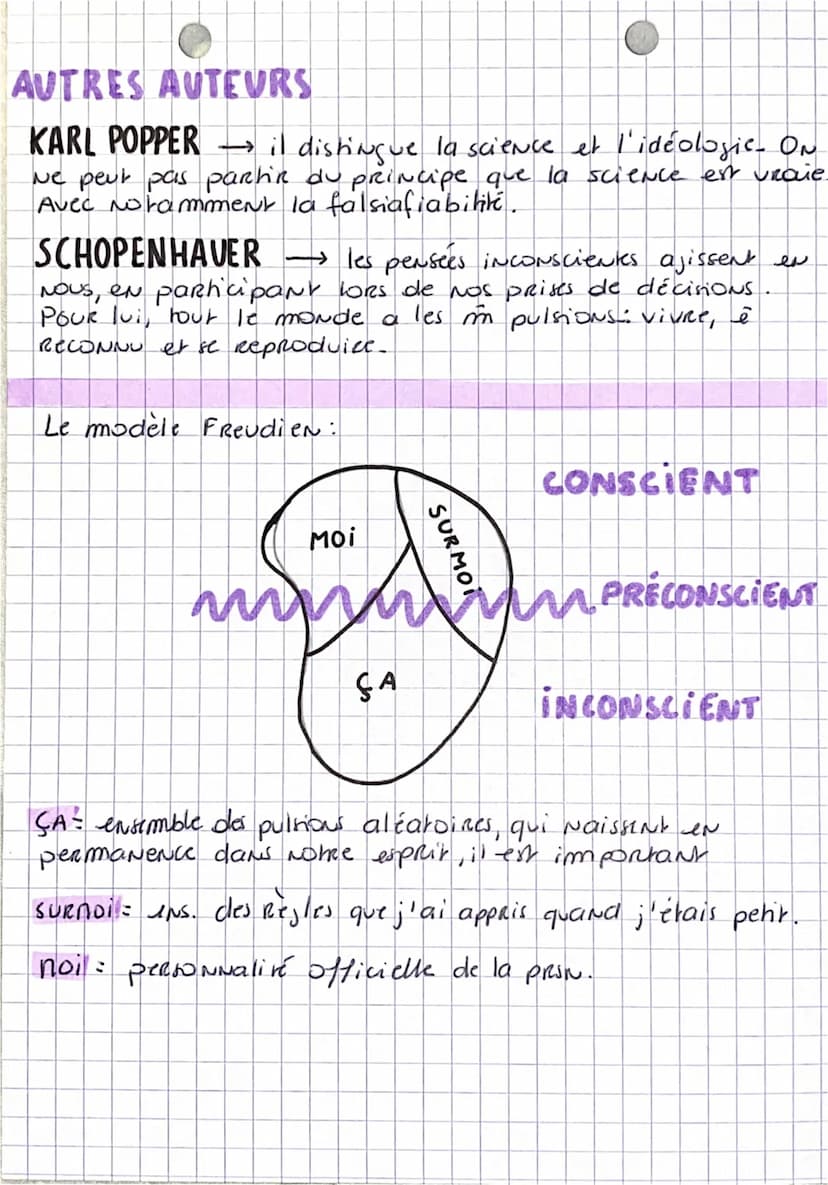 AUTRES AUTEURS
KARL POPPER → il distingue la science et l'idéologie. ON
ne peut pas partir du principe que la science est vraie.
Avec notammment la falsiafiabilité.
SCHOPENHAUER → les pensées inconscientes agissent en
nous, en participant lors de nos prises de décisions.
Pour lui, tout le monde a les m̂ pulsions: vivre, ê
reconnu et se reproduire.
Le modèle Freudien:
CONSCIENT
MOI
SURMOI
PRÉCONSCIENT
ÇA
INCONSCIENT
ÇA = ensemble des pulsions aléatoires, qui naissent en
permanence dans notre esprit, il est important
SURMOI = ens. des règles que j'ai appris quand j'étais petit.
MOI = personnalité officielle de la prsn.